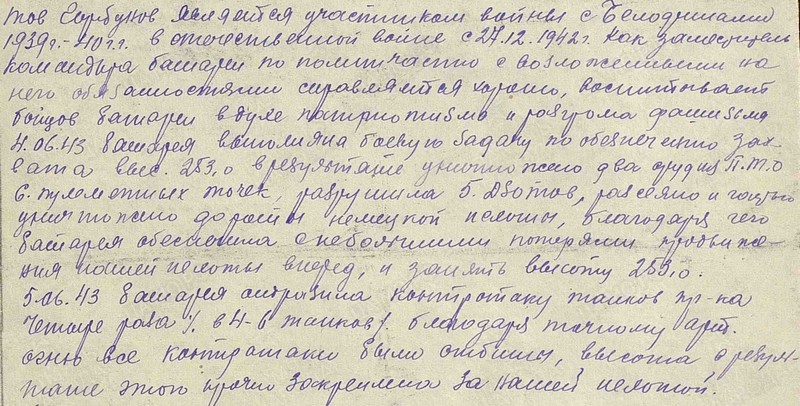 тов Горбунов является участником войны с Белофинами
1939г.-40г.г. в отечественной войне с 27.12.1942г. Как заместитель
командыра батареи по политчасто с возложенными на
него обязанностями справляится хорошо, воспитывает
бойцов батареи в духе патриотизма и разгрома фашизма
4.06.43 батарея выполняла боевую задачу по обеспечению зах-
вата выс. 253,0 в результате уничтожено два орудия П.Т.О
6. пулеметных точек, разрушила 5. Дзотов, рассеяно и
уничтожено до роты немецкой пехоты, благодаря чего
батарея обеспечила с небольшими потерями продвиже-
ния нашей пехоты вперед, и занять высоту 253,0.
5.06.43 батарея отразила контротаку танков пр-ка
Четыре раза /. в 4-6 танков/. благодаря точному арт.
огню все контратаки были отбиты, высота, в резуль-
тате этого прочно закреплена за нашей пехотой.